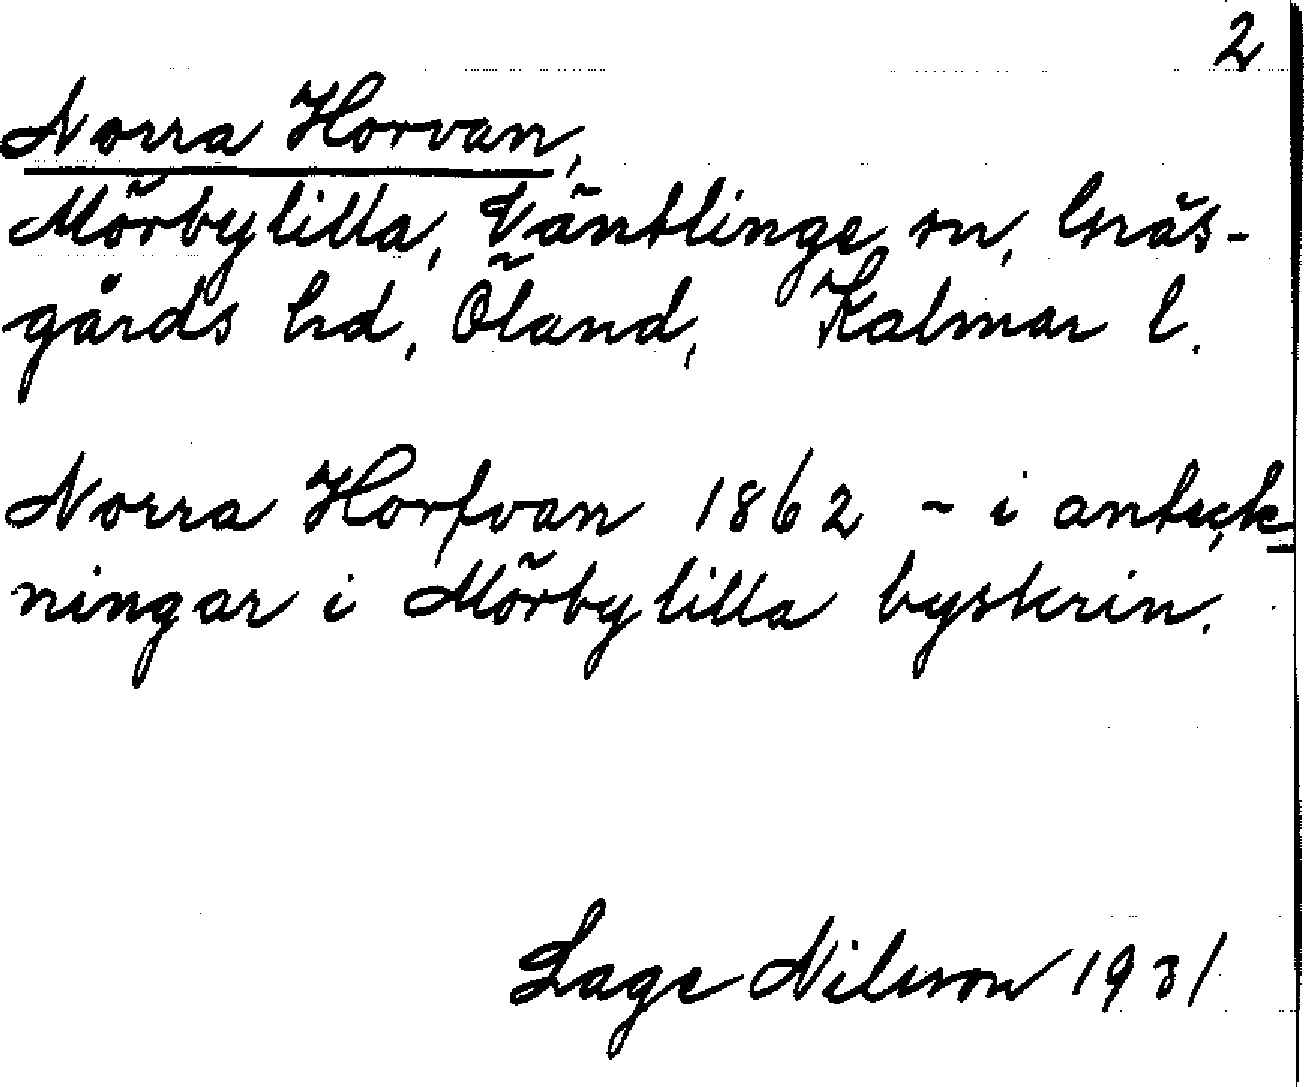 2
Norra Horvan,
Mörbylilla, Väntlinge sn, Gräs-
gårds hd, Öland, Kalmar l.
Norra Horfvan 1862 - i anteck-
ningar i Mörbylilla byskrin.
Lage Nilsson 1931